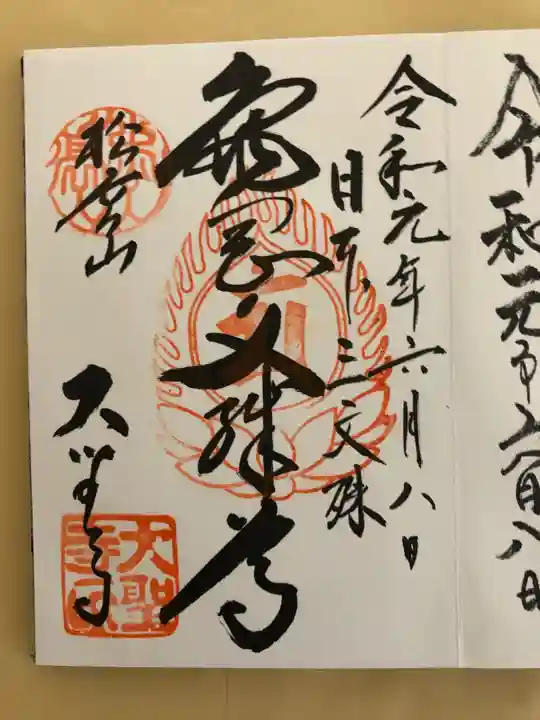 令和元年六月八日
令和元年六月八日
日下三文殊
亀岡文殊尊
松高山
大聖寺
大聖寺